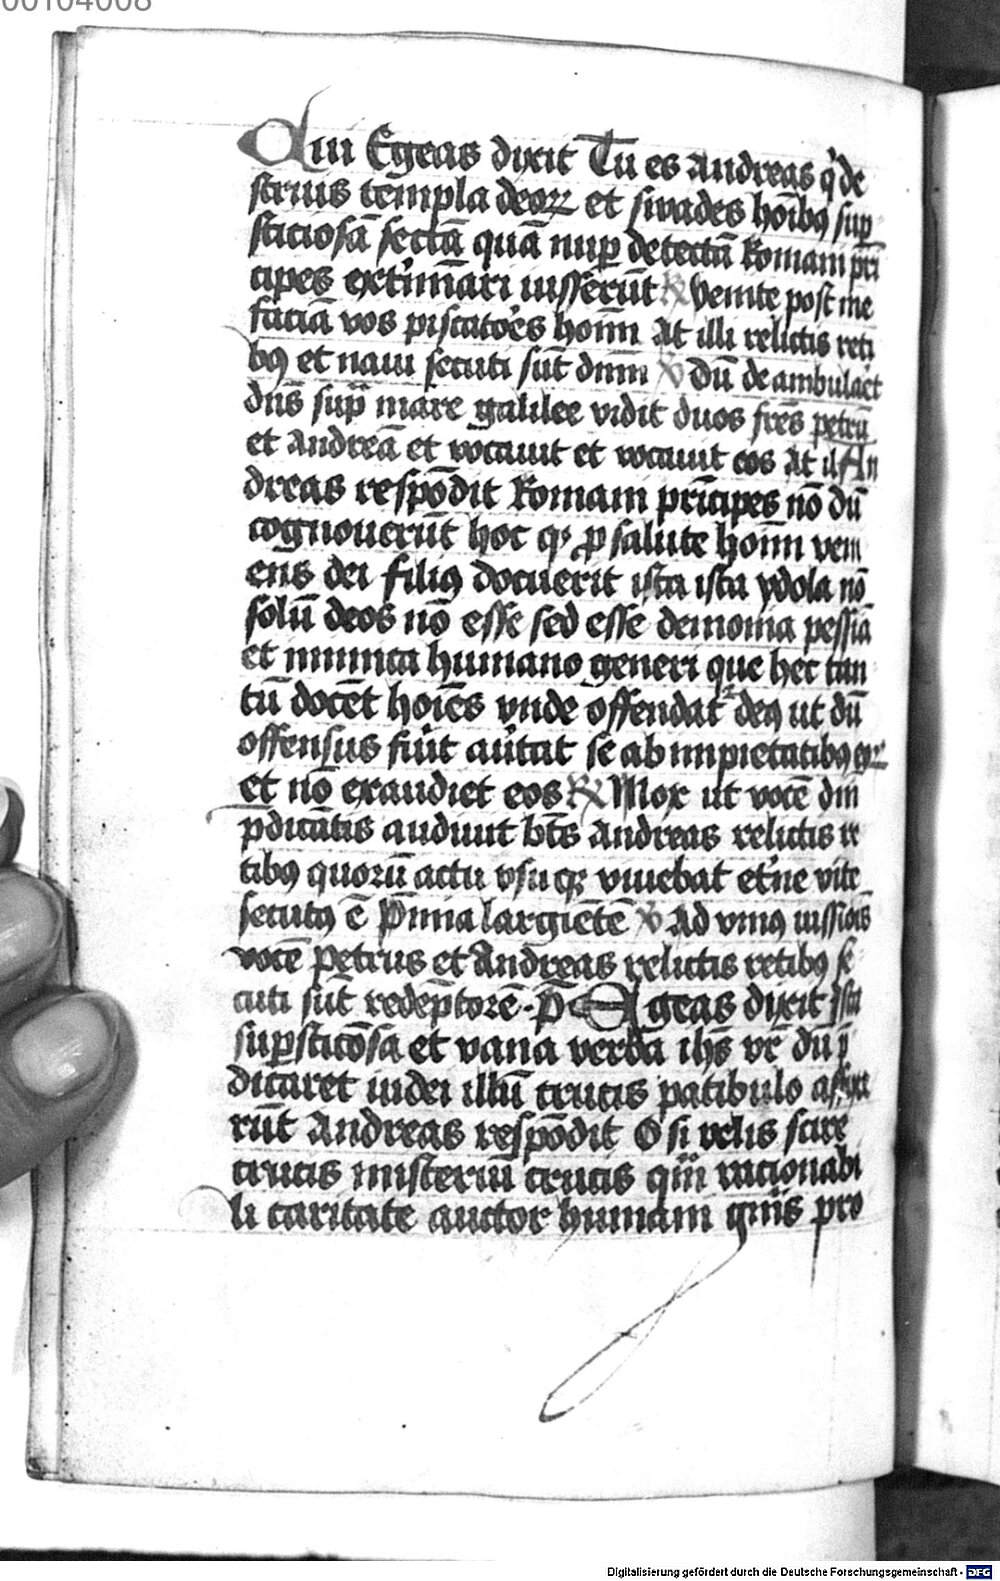 00104008
Qui Egeas dixit Tu es Andreas q de
struis templa deoꝝ et suades hoībꝯ sup
sticiosā sectā quā nuꝑ detectā Romani pri
cipes extīnāri iusserūt ℟ Venite post me
faciā vos piscatoēs hoīm At illi relictis reti
bꝯ et naui secuti sūt dnm ℣ Dū deambulaēt
dns sup mare galilee vidit duos frēs petrū
et Andreā et vocauit et vocauit eos At il An
dreas respōdit Romani prīcipes nō dū
cognouerūt hoc qꝫ ꝓ salute hoīm veni
ens dei filiꝯ docuerit ista ista ydola nō
solū deos nō esse sed esse demonia pessīa
et inimica humano generi que hec tan
tū docēt hoīes vnde offendat deꝯ ut dū
offensus fuīt aūtat se ab impietatibꝯ eoꝝ
et nō exaudiet eos ℟ Mox ut vocē dni
p̄dicātis audiuit bts Andreas relictis re
tibꝯ quorū actu vsuqꝫ viuebat etne vite
secutꝯ ē p̄mia largiētē ℣ Ad vniꝯ iussiōis
vocē Petrus et Andreas relictis retibꝯ se
cuti sūt redēptorē P̄ Egeas dixit Ista
supsticōsa et vana verba ihs vr̄ dū p̄
dicaret iudei illū crucis patibulo affixe
rūt Andreas respōdit O si velis scire
crucis misteriū crucis qm̄ racionabi
li caritate auctor humani gnis pro
Digitalisierung gefördert durch die Deutsche Forschungsgemeinschaft - DFG